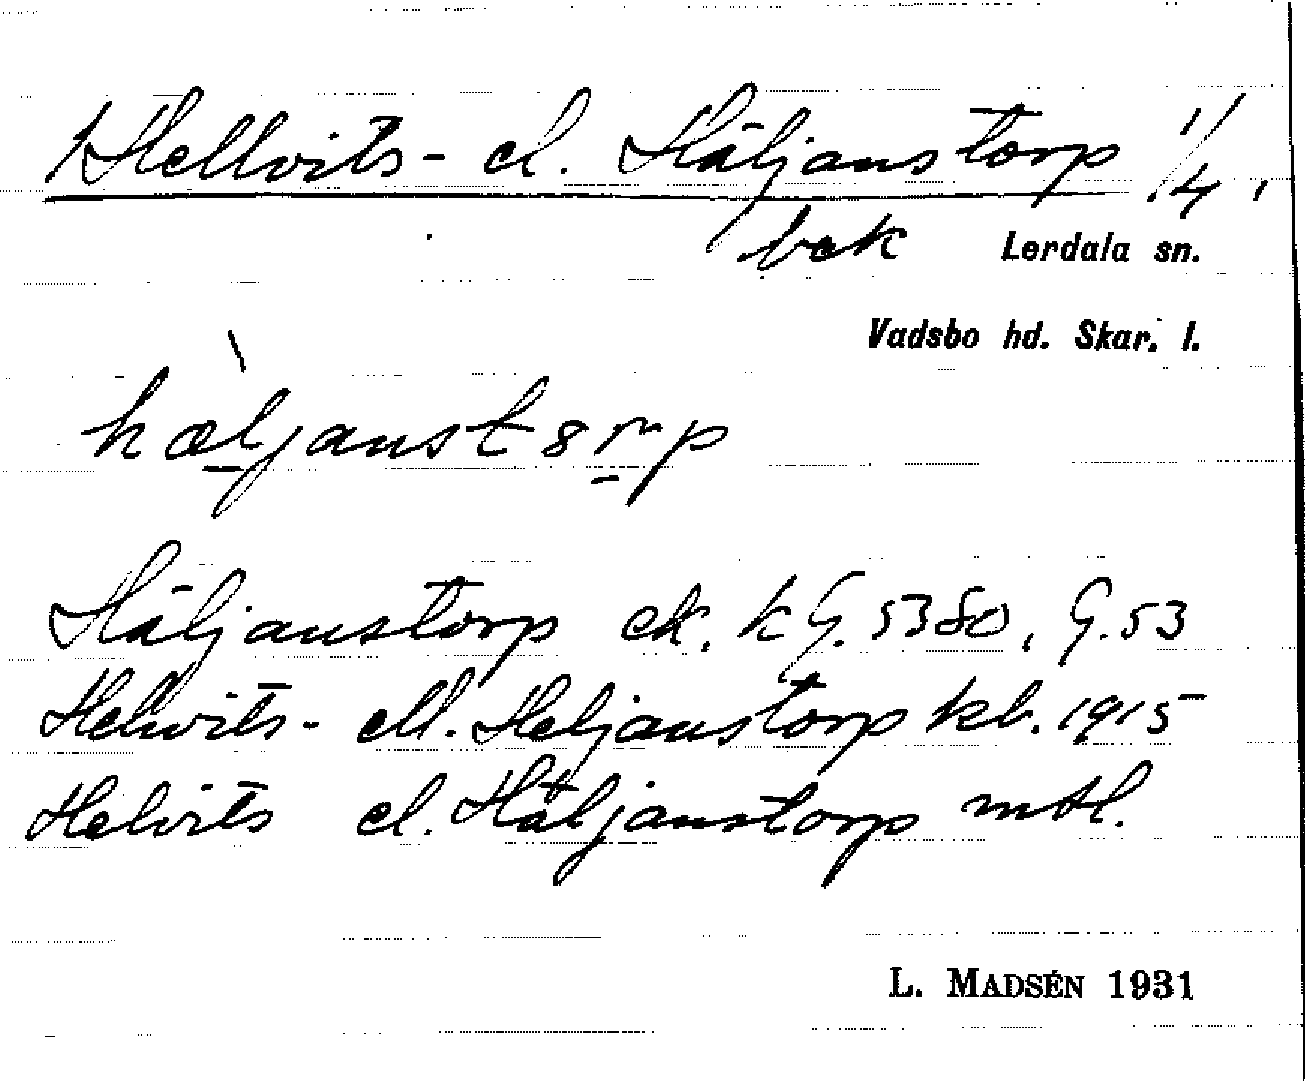 Hellvits- el. Häljanstorp 1/4,
bek Lerdala sn.
Vadsbo hd. Skar. l.
hæljanst8rp
Häljanstorp ek. k G. 5380, G. 53
Helvits- ell. Heljanstorp kb. 1915
Helvits el. Häljanstorp mtl.
L. MADSÉN 1931